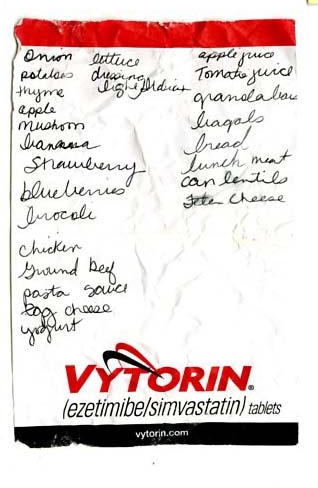 Onion
potatoes
thyme
apple
mushoom
banana
Strawberry
blueberries
brocoli
chicken
Ground beef
pasta sauce
bag cheese
yogurt
lettuce
dressing
light Italian
apple juice
Tomato juice
granola bar
bagals
bread
lunch meat
can lentils
Feta cheese
VYTORIN®
(ezetimibe/simvastatin) tablets
vytorin.com